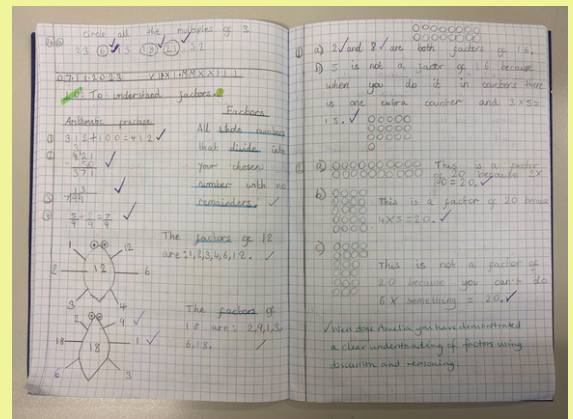 circle all the multiples of 3
23 6 13 18 21 32
07.11.2023 VII XI MMXXIII
L.O. To understand factors.
Arithmetic practise
① 312+100=412 ✓
②
- 50 ✓
371
③
④ 5/9 + 2/9 = 7/9 ✓
Factors
All whole numbers
that divide into
your chosen
number with no
remainders. ✓
1 12
2 12 6
3 4
The factors of 12
are: 1,2,3,4,6,12. ✓
2 9 ✓
18 18 1 ✓
6 3
The factors of
18 are: 2,9,1,3,
6,18. ✓
① a) 2 ✓ and 8 ✓ are both factors of 16.
b) 5 is not a factor of 16 because
when you do it in counters there
is one extra counter and 3x5=
15. ✓
a) This is a factor
of 20 because 2x
10 = 20. ✓
b) This is a factor of 20 because
4x5=20. ✓
c) This is not a factor of
20 because you can't do
6 x something = 20. ✓
✓ Well done Amelia you have demonstrated
a clear understanding of factors using
discussion and reasoning.